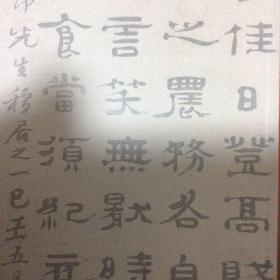 佳日登高賦
之農務各自
言笑無猒時
食當須紀
先生移居之一巳壬五月